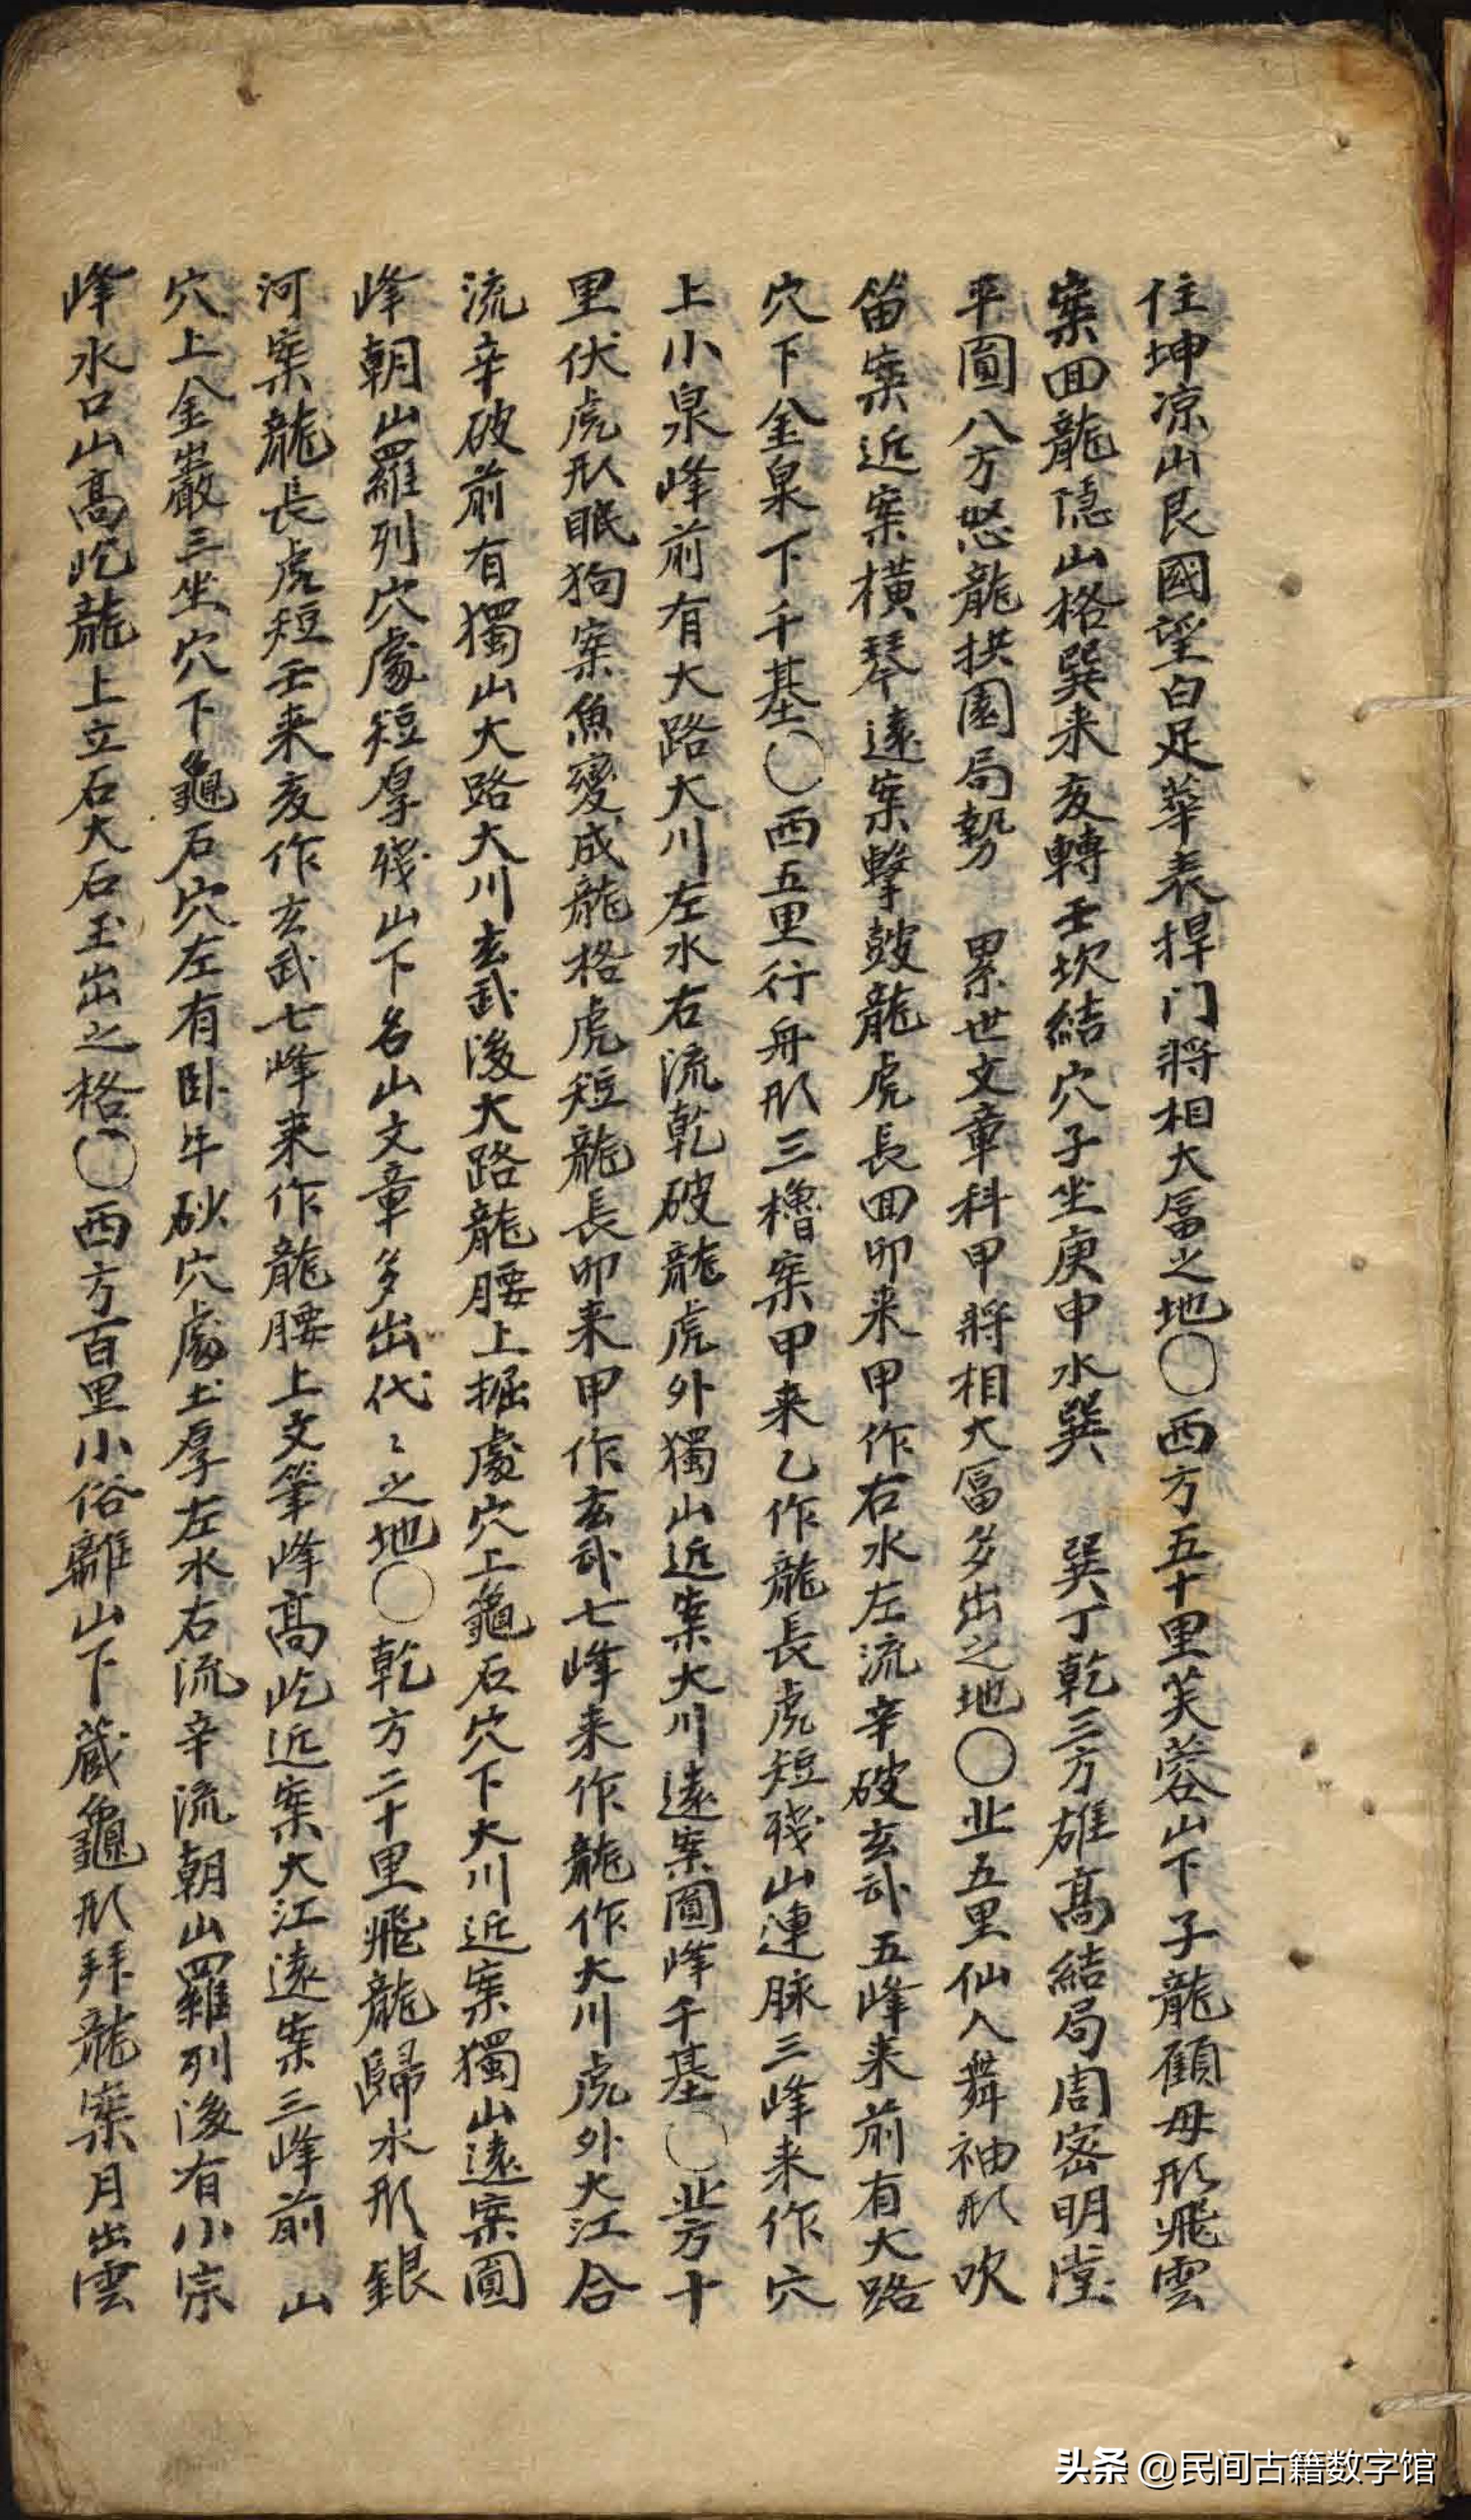 住坤凉山艮國望白足華表捍门將相大富之地〇西方五十里芙蓉山下子龍顧母形飛雲
案囬龍隠山格巽来亥轉壬坎結穴子坐庚申水巽 巽丁乾三方雄髙結局周密明堂
平圓八方怒龍拱圍局勢 累世文章科甲將相大富多出之地〇北五里仙人舞袖形吹
笛案近案横琴遠案擊鼓龍虎長囬卯来甲作右水左流辛破玄武五峰来前有大路
穴下金泉下千基〇西五里行舟形三櫓案甲来乙作龍長虎短殘山連脉三峰来作穴
上小泉峰前有大路大川左水右流乾破龍虎外獨山近案大川遠案圓峰千基〇北方十
里伏虎形眠狗案魚變成龍格虎短龍長卯来甲作玄武七峰来作龍作大川虎外大江合
流辛破前有獨山大路大川玄武後大路龍腰上掘處穴上龜石穴下大川近案獨山遠案圓
峰朝山羅列穴處短厚殘山下名山文章多出代〻之地〇乾方二十里飛龍歸水形銀
河案龍長虎短壬来亥作玄武七峰来作龍腰上文筆峰髙屹近案大江遠案三峰前 山
穴上金巖三坐穴下龜石穴左有卧牛砂穴處土厚左水右流辛流朝山羅列後有小宗
峰水口山髙屹龍上立石大石玉出之格〇西方百里小俗離山下蔵龜形拜龍案月出雲
头条 @民间古籍数字馆